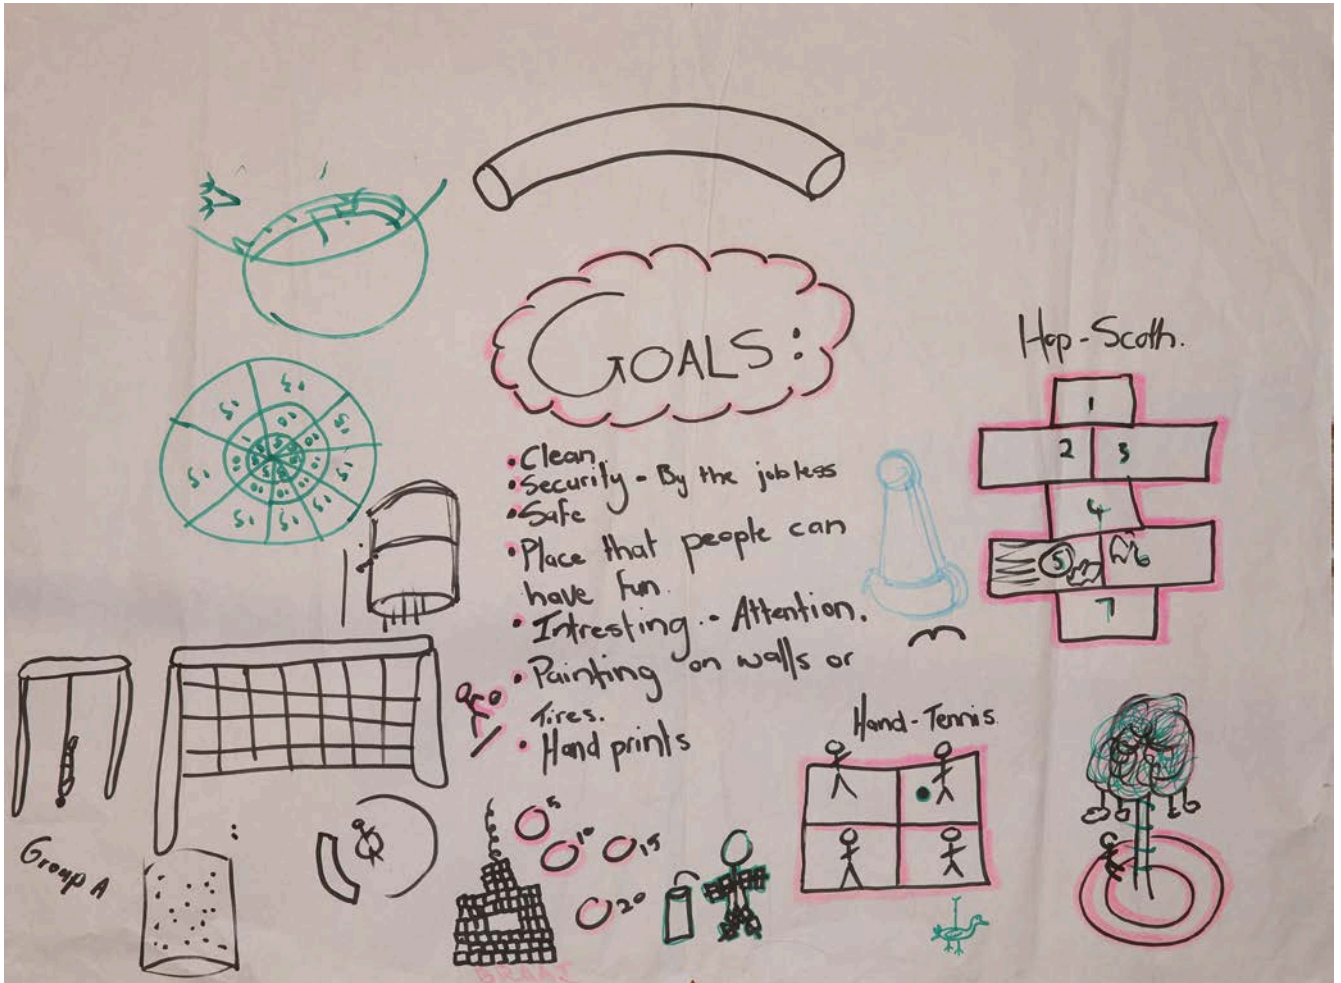 GOALS :
Hop-Scoth.
1
2 3
4
5 6
7
• Clean
• Security - By the jobless
• Safe
• Place that people can
have fun
• Intresting - Attention.
• Painting on walls or
Tires.
• Hand prints
Hand-Tennis
Group A
5
10
15
20
BRAAI